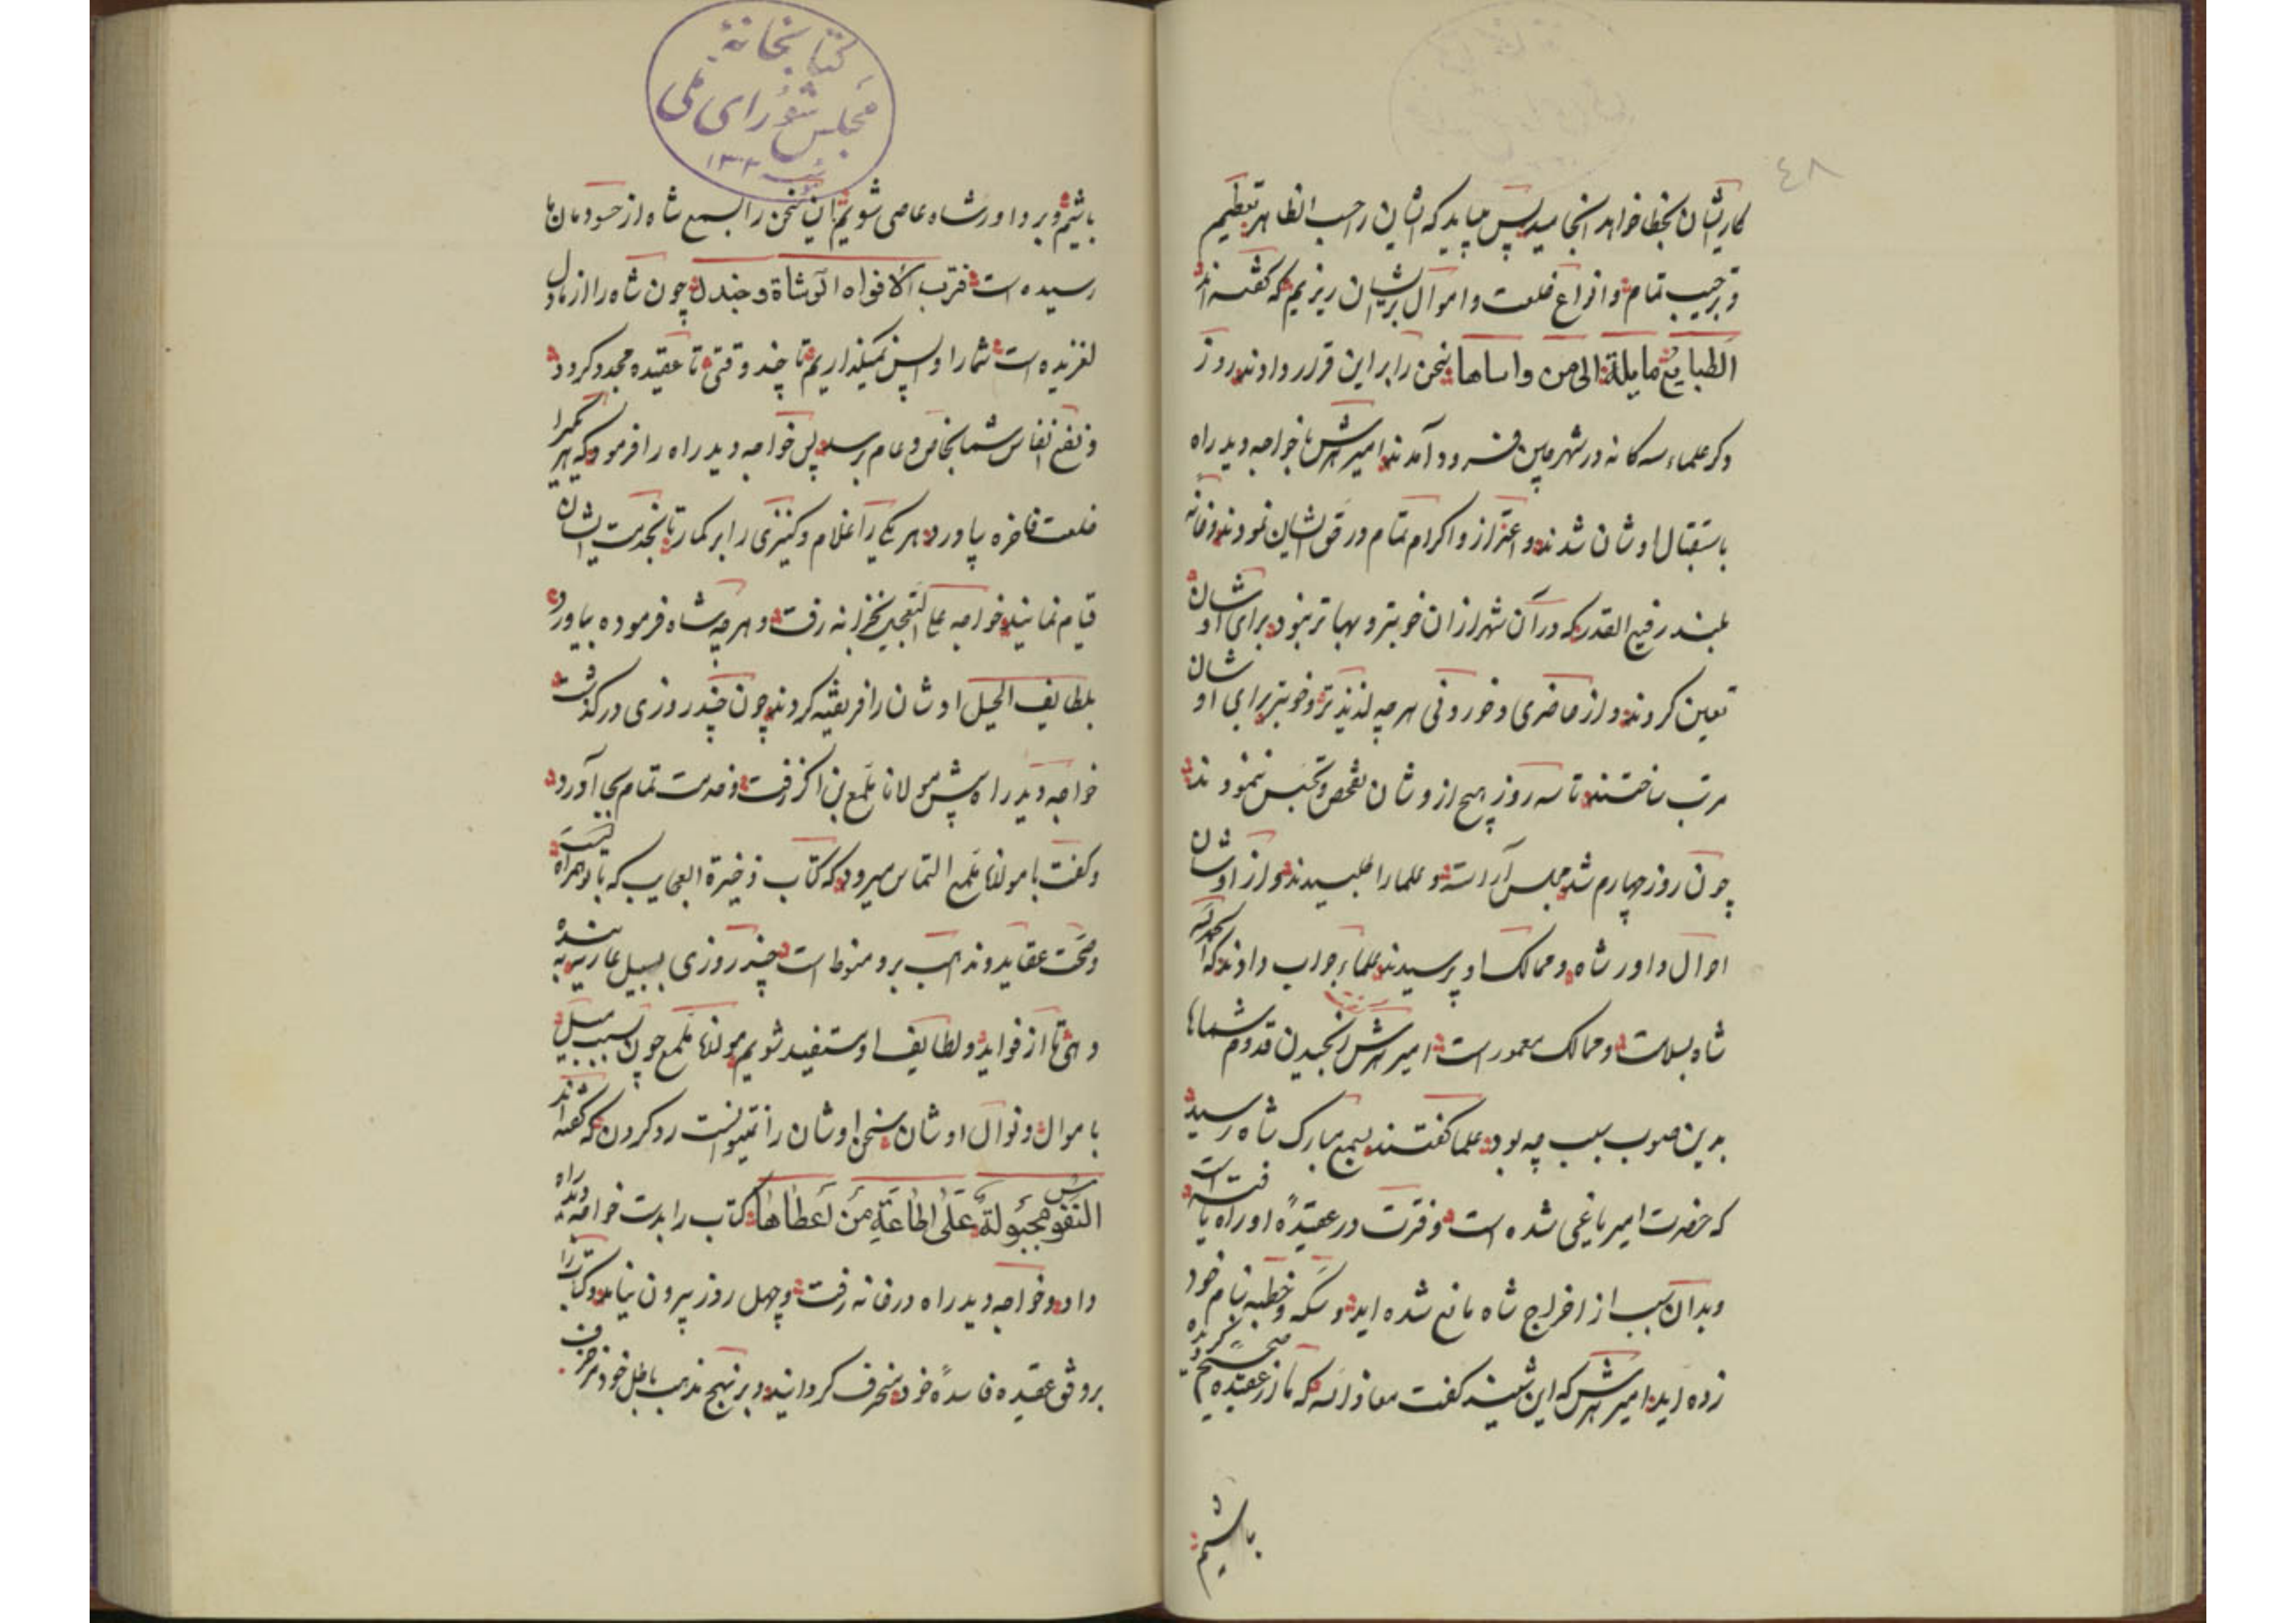 ۴۸
کار ایشان بخطا خواهد انجامید پس میباید که ایشان را حسب الظاهر تعظیم
و ترحیب تمام و انواع خلعت و اموال بر ایشان ریزیم که گفته اند
الطبایع مایلة الی من واساها سخن را بر این قرار دادند روز
دگر علماء سه گانه در شهر چین فرود آمدند امیر با خواجه دیدراه
باستقبال اوشان شدند و اعتزاز و اکرام تمام در حق ایشان نمودند و خانه
بلند رفیع القدر که در آن شهر از ان خوبتر و بهاتر نبود برای اوشان
تعین کردند و از ماحضری و خوردنی هر چه لذیذتر و خوبتر برای اوشان
مرتب ساختند تا سه روز هیچ از وشان تفحص و تجسس ننمودند
چون روز چهارم شد مجلس آراسته و علما را طلبیدند و از اوشان
احوال داور شاه و ممالک او پرسیدند علماء جواب دادند که الحمدلله
شاه بسلامت و ممالک معمور است امیر رنجیدن قدوم شماها
بدین صوب سبب چه بود علما گفتند بسمع مبارک شاه رسید
که حضرت امیر یاغی شده است و فترت در عقیدهٔ او راه یافته است
وبدان سبب از اخراج شاه مانع شده اید و سکه و خطبه بنام خود
زده اید امیر که این شنید گفت معاذ الله که ما از عقیده صحیح گردیده
باشیم
کتابخانهٔ
مجلس شورای ملی
۱۳۰۲
باشیم و بر داور شاه عاصی شویم این سخن را بسمع شاه از حسودمان ها
رسیده است فترب الافواه الوشاة وجندل چون شاه را از ما دل
لغزیده است شما را واپس نمیگذاریم تا چند وقتی تا عقیده مجدد گردد
و نفع انفاس شما بخاص و عام برسد پس خواجه دیدراه را فرمود که هر یکیرا
خلعت فاخره بیاورد هر یکی را غلام و کنیزی را بر گمارد تا بخدمت ایشان
قیام نمایند خواجه علی التعجیل بخزانه رفت و هر چه شاه فرموده بیاورد
بلطایف الحیل اوشان را فریفته کردند چون چند روزی در گذشت
خواجه دیدراه پیش مولانا ملمع بن رفت و خدمت تمام بجا آورد
و گفت با مولانا ملمع التماس میرود که کتاب ذخیرة العجایب که با تو همراه
و صحت عقاید و مذاهب برو منوط است چند روزی بسبیل عاریه به بنده
دهی تا از فواید و لطایف او مستفید شویم مولانا ملمع چون بسبب میل
باموال و نوال اوشان سخن اوشان را نمیتوانست رد کردن که گفته اند
النفوس مجبولة علی اطاعة من اعطاها کتاب را بدست خواجه دیدراه
داد و خواجه دیدراه در خانه رفت و چهل روز بیرون نیامد و کتاب را
بر وفق عقیده فاسدهٔ خود منحرف گردانید و بر نهج مذهب باطل خود مزخرف